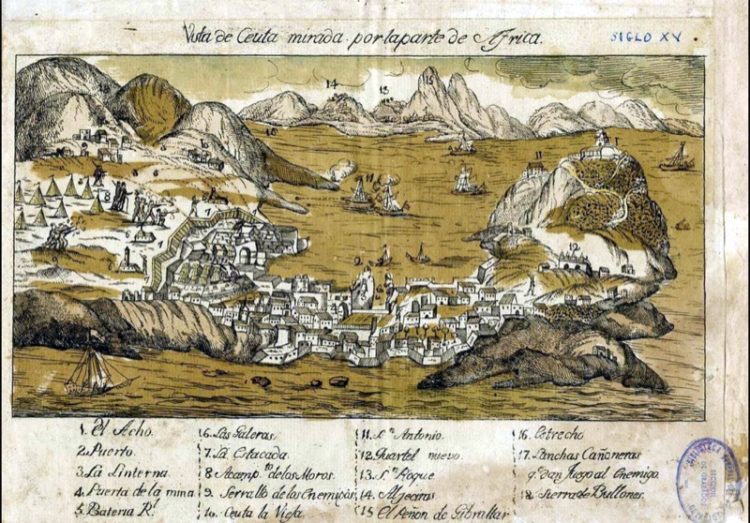 Vista de Ceuta mirada por la parte de Africa.
SIGLO XV
1. El Acho.
2. Puerto
3. La Linterna
4. Puerta de la mina
5. Bateria Rl.
6. Las Galeras.
7. La Estacada.
8. Acamp.to de los Moros.
9. Serrallo de los Enemigos
10. Ceuta la Vieja
11. S.n Antonio.
12. Quartel nuevo.
13. S.n Roque
14. Aljeciras
15. El Peñon de Gibraltar
16. Estrecho
17. Lanchas Cañoneras
q.e dan fuego al Enemigo.
18. Sierra de Bullones.